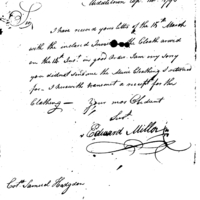 Middletown Ap. 1798
Sir
I have received your letter of the 14th March
with the inclosed for the Cloth
on the 4th Inst. in good order. I am very sorry
you did not send me the Clothing I returned
for. I herewith transmit a receipt for this
Clothing — Your most Obedient
Servt
Edward Miller
Colo Samuel Hodgdon